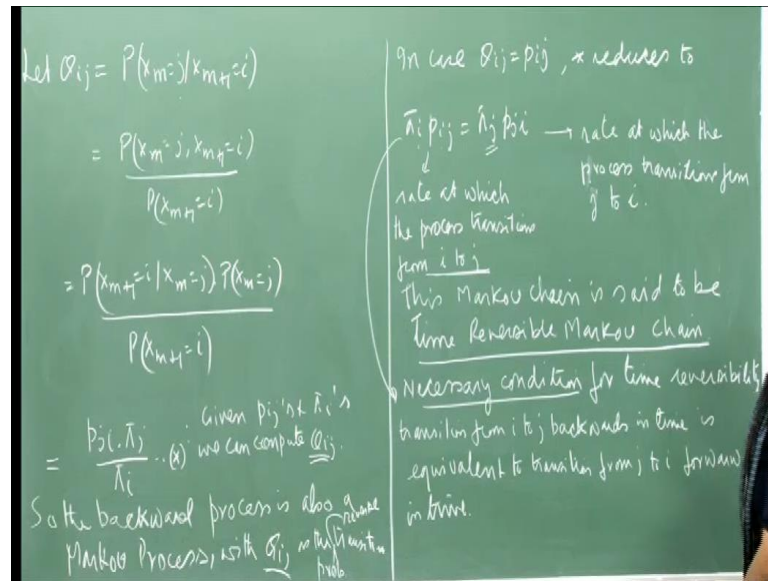 Let Qij = P(Xm=j/Xm+1=i)
= P(Xm=j, Xm+1=i)
P(Xm+1=i)
= P(Xm+1=i|Xm=j) P(Xm=j)
P(Xm+1=i)
= Pji.πj / πi ..(*) Given Pij's & πi's
we can compute Qij.
So the backward process is also a
Markov Process, with Qij as the reverse transition
prob.
In case Qij=pij, * reduces to
πi pij = πj pji → rate at which the
process transition from
j to i.
rate at which
the process transitions
from i to j
This Markov chain is said to be
Time Reversible Markov Chain
Necessary condition for time reversibility
transition from i to j backwards in time is
equivalent to transition from j to i forward
in time.